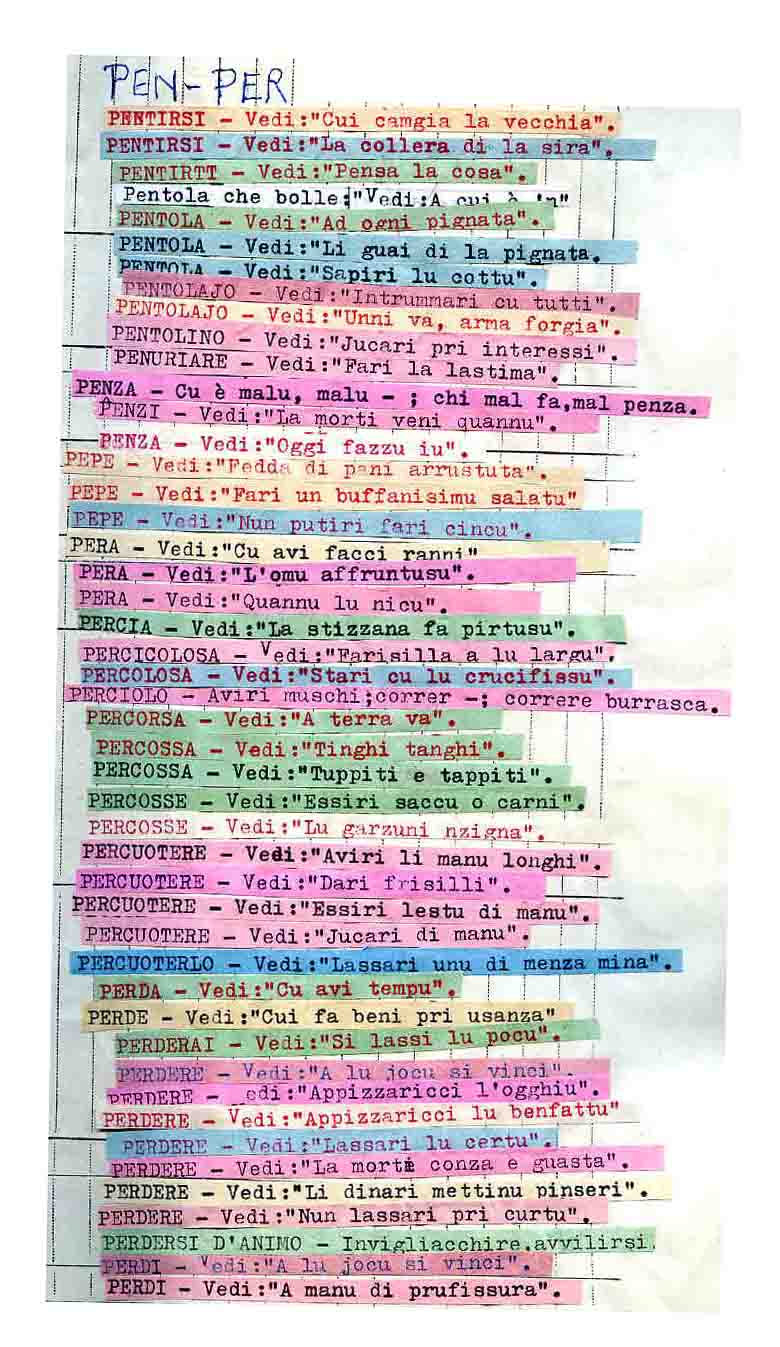 PEN- PER
PENTIRSI - Vedi:"Cui camgia la vecchia".
PENTIRSI - Vedi:"La collera di la sira".
PENTIRTT - Vedi:"Pensa la cosa".
Pentola che bolle:"Vedi:A cui è 'n"
PENTOLA - Vedi:"Ad ogni pignata".
PENTOLA - Vedi:"Li guai di la pignata.
PENTOLA - Vedi:"Sapiri lu cottu".
PENTOLAJO - Vedi:"Intrummari cu tutti".
PENTOLAJO - Vedi:"Unni va, arma forgia".
PENTOLINO - Vedi:"Jucari pri interessi".
PENURIARE - Vedi:"Fari la lastima".
PENZA - Cu è malu, malu - ; chi mal fa,mal penza.
PENZI - Vedi:"La morti veni quannu".
PENZA - Vedi:"Oggi fazzu iu".
PEPE - Vedi:"Fedda di pani arrustuta".
PEPE - Vedi:"Fari un buffanisimu salatu"
PEPE - Vedi:"Nun putiri fari cincu".
PERA - Vedi:"Cu avi facci ranni"
PERA - Vedi:"L'omu affruntusu".
PERA - Vedi:"Quannu lu nicu".
PERCIA - Vedi:"La stizzana fa pirtusu".
PERCICOLOSA - Vedi:"Farisilla a lu largu".
PERCOLOSA - Vedi:"Stari cu lu crucifissu".
PERCIOLO - Aviri muschi;correr -; correre burrasca.
PERCORSA - Vedi:"A terra va".
PERCOSSA - Vedi:"Tinghi tanghi".
PERCOSSA - Vedi:"Tuppiti e tappiti".
PERCOSSE - Vedi:"Essiri saccu o carni".
PERCOSSE - Vedi:"Lu garzuni nzigna".
PERCUOTERE - Vedi:"Aviri li manu longhi".
PERCUOTERE - Vedi:"Dari frisilli".
PERCUOTERE - Vedi:"Essiri lestu di manu".
PERCUOTERE - Vedi:"Jucari di manu".
PERCUOTERLO - Vedi:"Lassari unu di menza mina".
PERDA - Vedi:"Cu avi tempu".
PERDE - Vedi:"Cui fa beni pri usanza"
PERDERAI - Vedi:"Si lassi lu pocu".
PERDERE - Vedi:"A lu jocu si vinci".
PERDERE - edi:"Appizzaricci l'ogghiu".
PERDERE - Vedi:"Appizzaricci lu benfattu"
PERDERE - Vedi:"Lassari lu certu".
PERDERE - Vedi:"La morti conza e guasta".
PERDERE - Vedi:"Li dinari mettinu pinseri".
PERDERE - Vedi:"Nun lassari pri curtu".
PERDERSI D'ANIMO - Invigliacchire,avvilirsi.
PERDI - Vedi:"A lu jocu si vinci".
PERDI - Vedi:"A manu di prufissura".